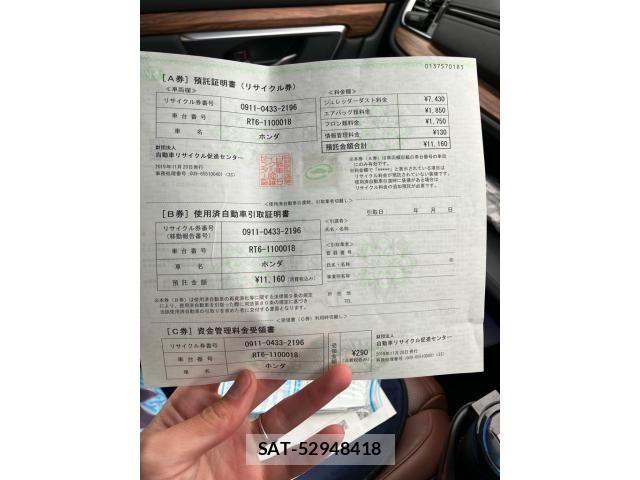 0137570185
[A券] 預託証明書（リサイクル券）
＜車両欄＞
リサイクル券番号 0911-0433-2196
車台番号 RT6-1100018
車名 ホンダ
＜料金欄＞
シュレッダーダスト料金 ¥7,430
エアバッグ類料金 ¥1,850
フロン類料金 ¥1,750
情報管理料金 ¥130
預託金額合計 ¥11,160
財団法人
自動車リサイクル促進センター
2019年11月20日発行
※本券（A券）は車両欄記載の車台番号の車両
にのみ有効です。
リサイクル料金の追加預託が必要です。
[B券] 使用済自動車引取証明書
引取日 年 月 日
リサイクル券番号
（移動報告番号） 0911-0433-2196
車台番号 RT6-1100018
車名 ホンダ
預託金額 ¥11,160（消費税込み）
＜引渡者＞
氏名・名称
＜引取業者＞
登録番号
氏名・名称
事業所名称
所在地
TEL
[C券] 資金管理料金受領書
リサイクル券番号 0911-0433-2196
車台番号 RT6-1100018
車名 ホンダ
受領金額 ¥290
（消費税込み）
財団法人
自動車リサイクル促進センター
2019年11月20日発行
SAT-52948418